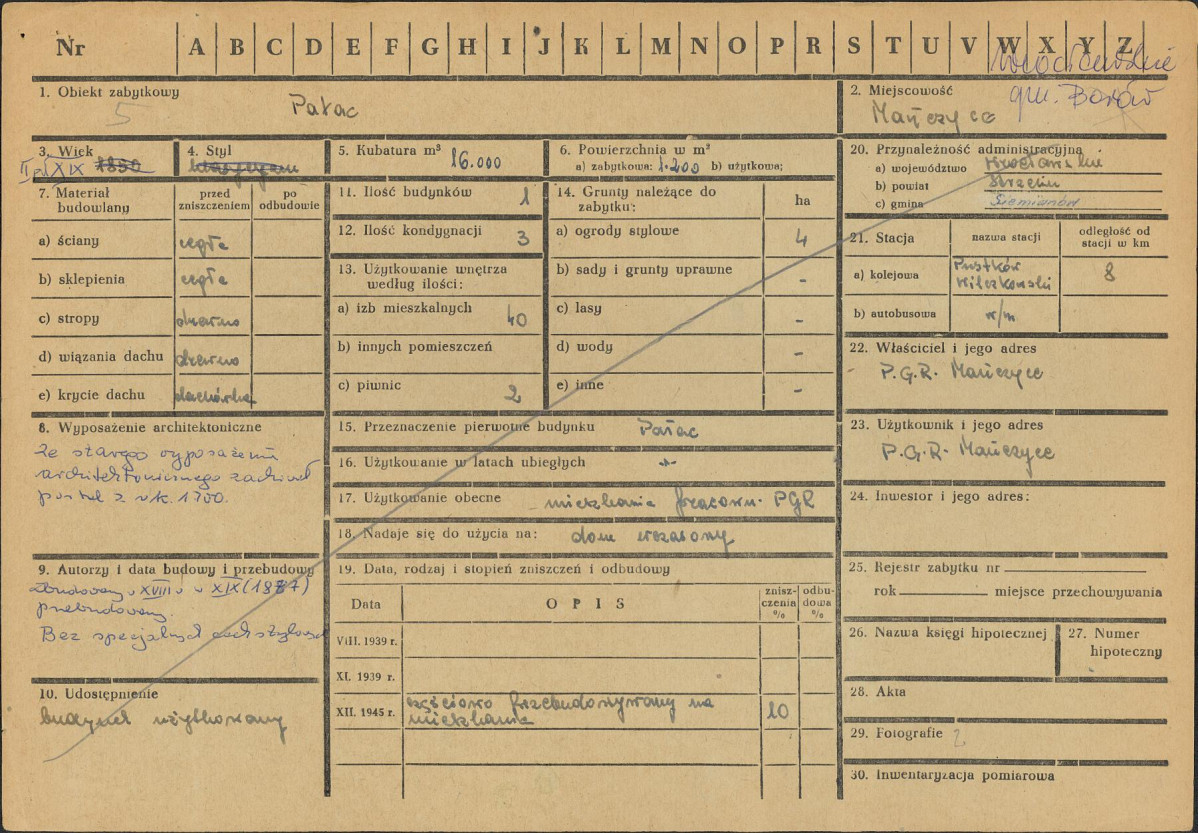 Nr A B C D E F G H I J K L M N O P R S T U V W X Y Z
Wrocławskie
gm. Borów
1. Obiekt zabytkowy
5
Pałac
2. Miejscowość
Mańczyce
3. Wiek
II poł XIX 1830
4. Styl
5. Kubatura m³ 16.000
6. Powierzchnia w m²
a) zabytkowa: 1.200 b) użytkowa;
7. Materiał budowlany
przed zniszczeniem
po odbudowie
a) ściany cegła
b) sklepienia cegła
c) stropy drzewo
d) wiązania dachu drzewo
e) krycie dachu dachówka
8. Wyposażenie architektoniczne
Ze starego wyposażenia
architektonicznego zachował
portal z r.k. 1700.
9. Autorzy i data budowy i przebudowy
zbudowany w XVIII w XIX (1877)
przebudowany.
Bez specjalnych cech stylowych
10. Udostępnienie
budynek użytkowany
11. Ilość budynków 1
12. Ilość kondygnacji 3
13. Użytkowanie wnętrza według ilości:
a) izb mieszkalnych 40
b) innych pomieszczeń
c) piwnic 2
14. Grunty należące do zabytku:
ha
a) ogrody stylowe 4
b) sady i grunty uprawne -
c) lasy -
d) wody -
e) inne -
15. Przeznaczenie pierwotne budynku Pałac
16. Użytkowanie w latach ubiegłych -"-
17. Użytkowanie obecne - mieszkania pracown. PGR
18. Nadaje się do użycia na: dom wczasowy
19. Data, rodzaj i stopień zniszczeń i odbudowy
Data
OPIS
znisz-czenia %
odbu-dowa %
VIII. 1939 r.
XI. 1939 r.
XII. 1945 r. częściowo przebudowywany na
mieszkania 10
20. Przynależność administracyjna
a) województwo Wrocławskie
b) powiat Strzelin
c) gmina Siemianów
21. Stacja
nazwa stacji
odległość od stacji w km
a) kolejowa Pustków
Wilczkowski 8
b) autobusowa w/m
22. Właściciel i jego adres
P.G.R. Mańczyce
23. Użytkownik i jego adres
P.G.R. Mańczyce
24. Inwestor i jego adres:
25. Rejestr zabytku nr
rok miejsce przechowywania
26. Nazwa księgi hipotecznej
27. Numer hipoteczny
28. Akta
29. Fotografie 2
30. Inwentaryzacja pomiarowa